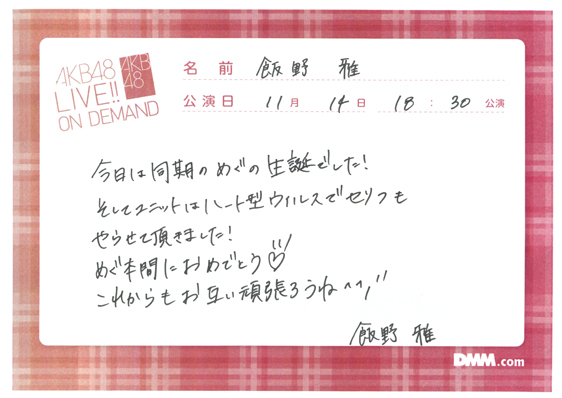 AKB48
LIVE!!
ON DEMAND
AKB
48
名 前 飯野 雅
公演日 11月 14日 18:30 公演
今日は同期のめぐの生誕でした!
そしてユニットはハート型ウィルスでセリフも
やらせて頂きました!
めぐ本間におめでとう♡
これからもお互い頑張ろうね^^
飯野 雅
DMM.com